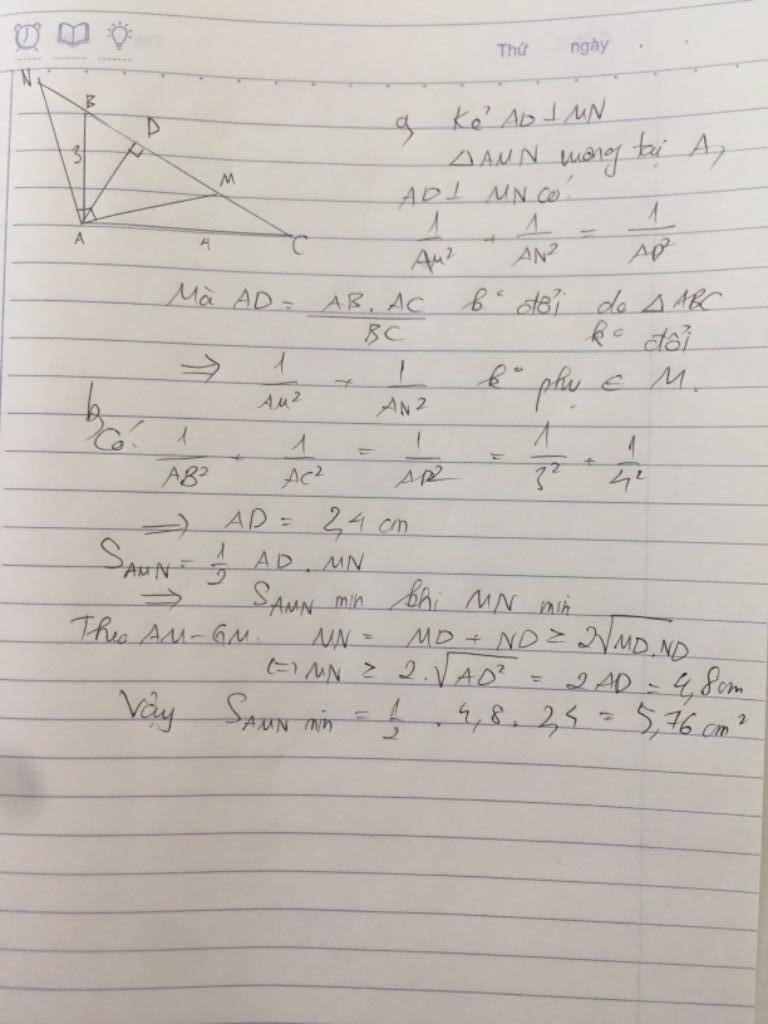 Thứ ngày
N
B
D
3
M
A
4
C
a, Kẻ AD ⊥ MN
△AMN vuông tại A,
AD ⊥ MN có:
1/AM² + 1/AN² = 1/AD²
Mà AD = AB . AC / BC k° đổi do △ABC
k° đổi
=> 1/AM² + 1/AN² k° phụ ∈ M.
b,
Có: 1/AB² + 1/AC² = 1/AD² = 1/3² + 1/4²
=> AD = 2,4 cm
S_AMN = 1/2 AD . MN
=> S_AMN min khi MN min
Theo AM-GM. MN = MD + ND ≥ 2√MD.ND
(=) MN ≥ 2.√AD² = 2AD = 4,8cm
Vậy S_AMN min = 1/2 . 4,8 . 2,4 = 5,76 cm²